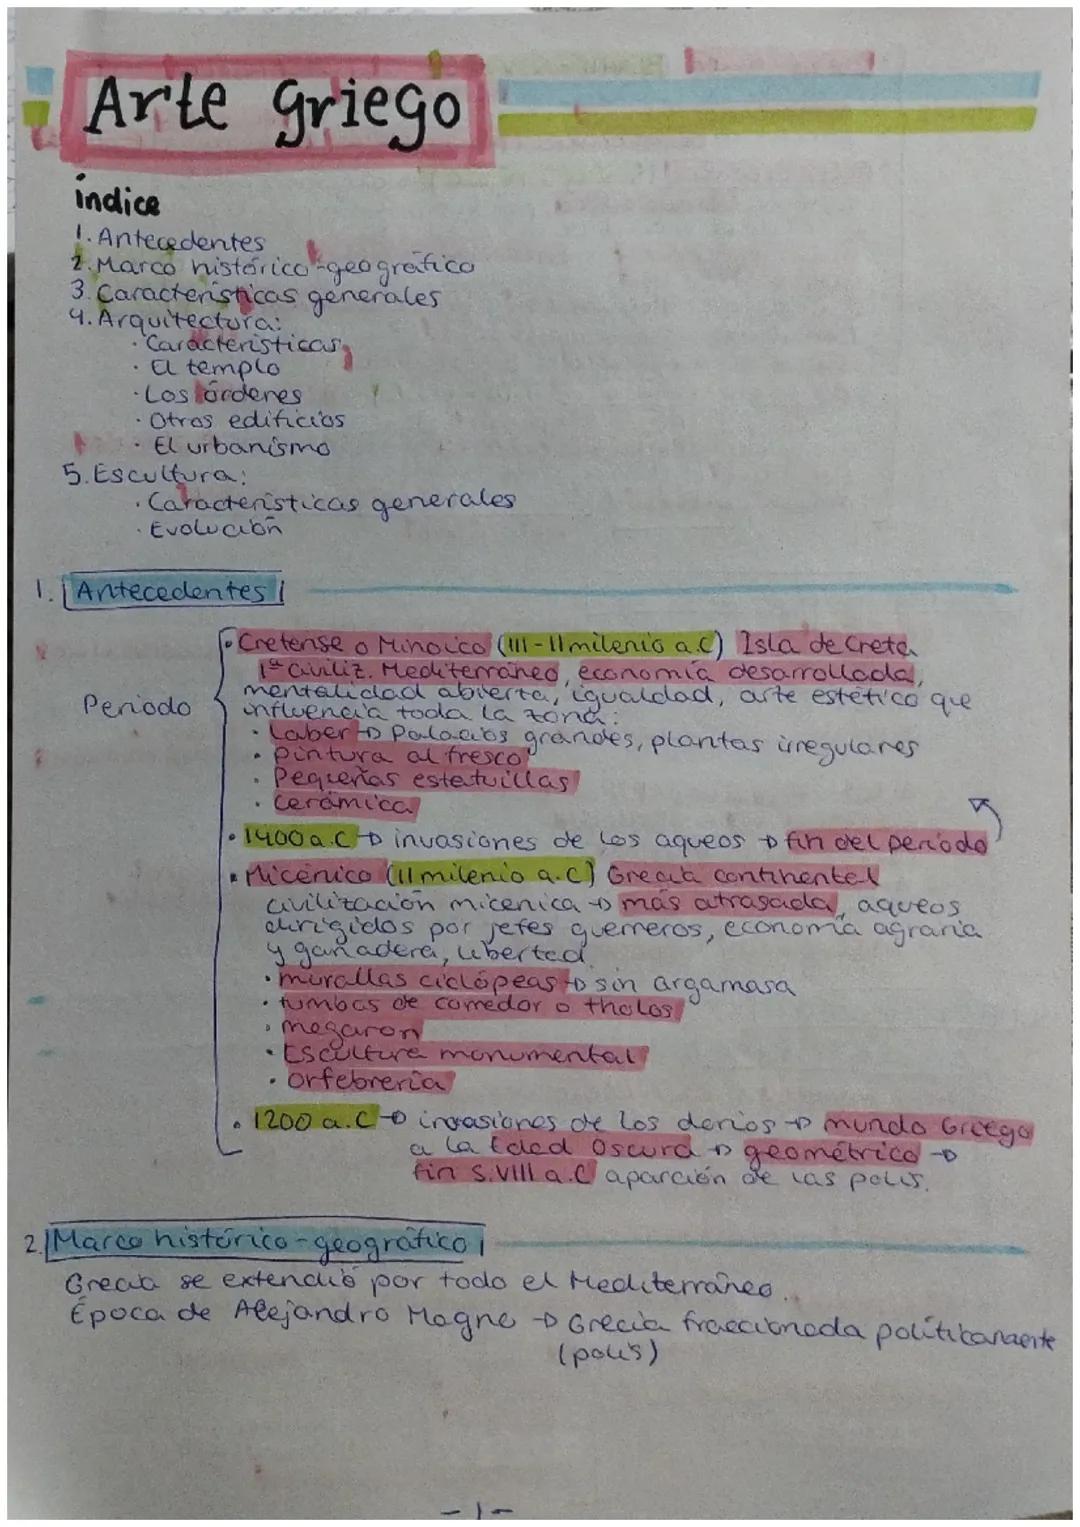 Arte griego
índice
1. Antecedentes
2. Marco histórico-geográfico
3. Características generales
4. Arquitectura:
· Características
· El templo
· Los órdenes
· Otros edificios
· El urbanismo
5. Escultura:
· Características generales
· Evolución
1. Antecedentes
Periodo
· Cretense o Minoico (III-II milenio a.C) Isla de Creta
1ª civiliz. Mediterráneo, economía desarrollada,
mentalidad abierta, igualdad, arte estético que
influencia toda la zona:
· Laber → Palacios grandes, plantas irregulares
· Pintura al fresco
· Pequeñas estatuillas
· Cerámica
· 1400 a.C → invasiones de los aqueos → fin del periodo
· Micénico (II milenio a.C) Grecia continental
civilización micenica → más atrasada, aqueos
dirigidos por jefes guerreros, economía agraria
y ganadera, libertad
· murallas ciclópeas → sin argamasa
· tumbas de corredor o tholos
· megaron
· Escultura monumental
· orfebrería
· 1200 a.C → invasiones de los dorios → mundo Griego
a la Edad Oscura → geométrico →
fin S.VIII a.C aparción de las polis.
2. Marco histórico-geográfico
Grecia se extendió por todo el Mediterráneo.
Época de Alejandro Magno → Grecia fraccionada políticamente
(polis)
-1-